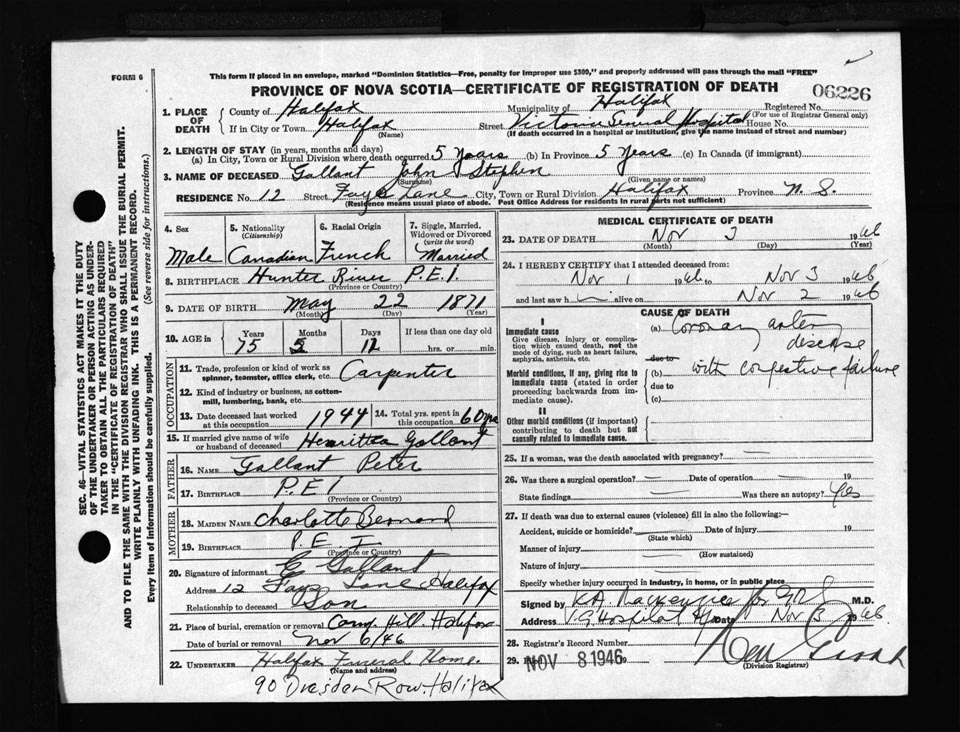 FORM 6
This form if placed in an envelope, marked "Dominion Statistics—Free, penalty for improper use $300," and properly addressed will pass through the mail "FREE"
PROVINCE OF NOVA SCOTIA—CERTIFICATE OF REGISTRATION OF DEATH
06226
1. PLACE OF DEATH County of Halifax Municipality of Halifax Registered No.
(For use of Registrar General only)
If in City or Town Halifax Street Victoria General Hospital House No.
(Name) (If death occurred in a hospital or institution, give the name instead of street and number)
2. LENGTH OF STAY (in years, months and days)
(a) In City, Town or Rural Division where death occurred 5 years (b) In Province 5 years (c) In Canada (if immigrant)
3. NAME OF DECEASED Gallant John Stephen
(Surname) (Given name or names)
RESIDENCE No. 12 Street Faye Lane City, Town or Rural Division Halifax Province N. S.
(Residence means usual place of abode. Post Office Address for residents in rural parts not sufficient)
4. Sex 5. Nationality (Citizenship) 6. Racial Origin 7. Single, Married, Widowed or Divorced (write the word)
Male Canadian French Married
8. BIRTHPLACE Hunter River P.E.I.
(Province or Country)
9. DATE OF BIRTH May 22 1871
(Month) (Day) (Year)
10. AGE in Years Months Days If less than one day old
75 5 11 hrs. or min.
OCCUPATION
11. Trade, profession or kind of work as spinner, teamster, office clerk, etc. Carpenter
12. Kind of industry or business, as cotton-mill, lumbering, bank, etc.
13. Date deceased last worked at this occupation 1944 14. Total yrs. spent in this occupation 60 yrs
15. If married give name of wife or husband of deceased Henrittea Gallant
FATHER
16. NAME Gallant Peter
17. BIRTHPLACE P.E.I
(Province or Country)
MOTHER
18. MAIDEN NAME Charlotte Bernard
19. BIRTHPLACE P. E. I
(Province or Country)
20. Signature of informant E Gallant
Address 12 Faye Lane Halifax
Relationship to deceased Son
21. Place of burial, cremation or removal Camp Hill. Halifax
Date of burial or removal Nov 6/46
22. UNDERTAKER Halifax Funeral Home.
(Name and address)
90 Dresden Row. Halifax
MEDICAL CERTIFICATE OF DEATH
23. DATE OF DEATH Nov 3 1946
(Month) (Day) (Year)
24. I HEREBY CERTIFY that I attended deceased from:
Nov 1 1946 to Nov 3 1946
and last saw him alive on Nov 2 1946
CAUSE OF DEATH
I
Immediate cause
Give disease, injury or complication which caused death, not the mode of dying, such as heart failure, asphyxia, asthenia, etc.
(a) Coronary artery disease
due to
Morbid conditions, if any, giving rise to immediate cause (stated in order proceeding backwards from immediate cause).
(b) with congestive failure
due to
(c)
II
Other morbid conditions (if important) contributing to death but not causally related to immediate cause.
25. If a woman, was the death associated with pregnancy?
26. Was there a surgical operation? Date of operation 19
State findings Was there an autopsy? Yes
27. If death was due to external causes (violence) fill in also the following:—
Accident, suicide or homicide? Date of injury 19
(State which)
Manner of injury
(How sustained)
Nature of injury
Specify whether injury occurred in industry, in home, or in public place
Signed by K.A. for M.D.
Address V.G. Hospital Hfx Date Nov 3 1946
28. Registrar's Record Number
29. NOV 8 1946
(Division Registrar)
SEC. 46—VITAL STATISTICS ACT MAKES IT THE DUTY
OF THE UNDERTAKER OR PERSON ACTING AS UNDER-
TAKER TO OBTAIN ALL THE PARTICULARS REQUIRED
IN THE "CERTIFICATE OF REGISTRATION OF DEATH"
AND TO FILE THE SAME WITH THE DIVISION REGISTRAR WHO SHALL ISSUE THE BURIAL PERMIT.
WRITE PLAINLY WITH UNFADING INK. THIS IS A PERMANENT RECORD.
Every item of information should be carefully supplied. (See reverse side for instructions.)